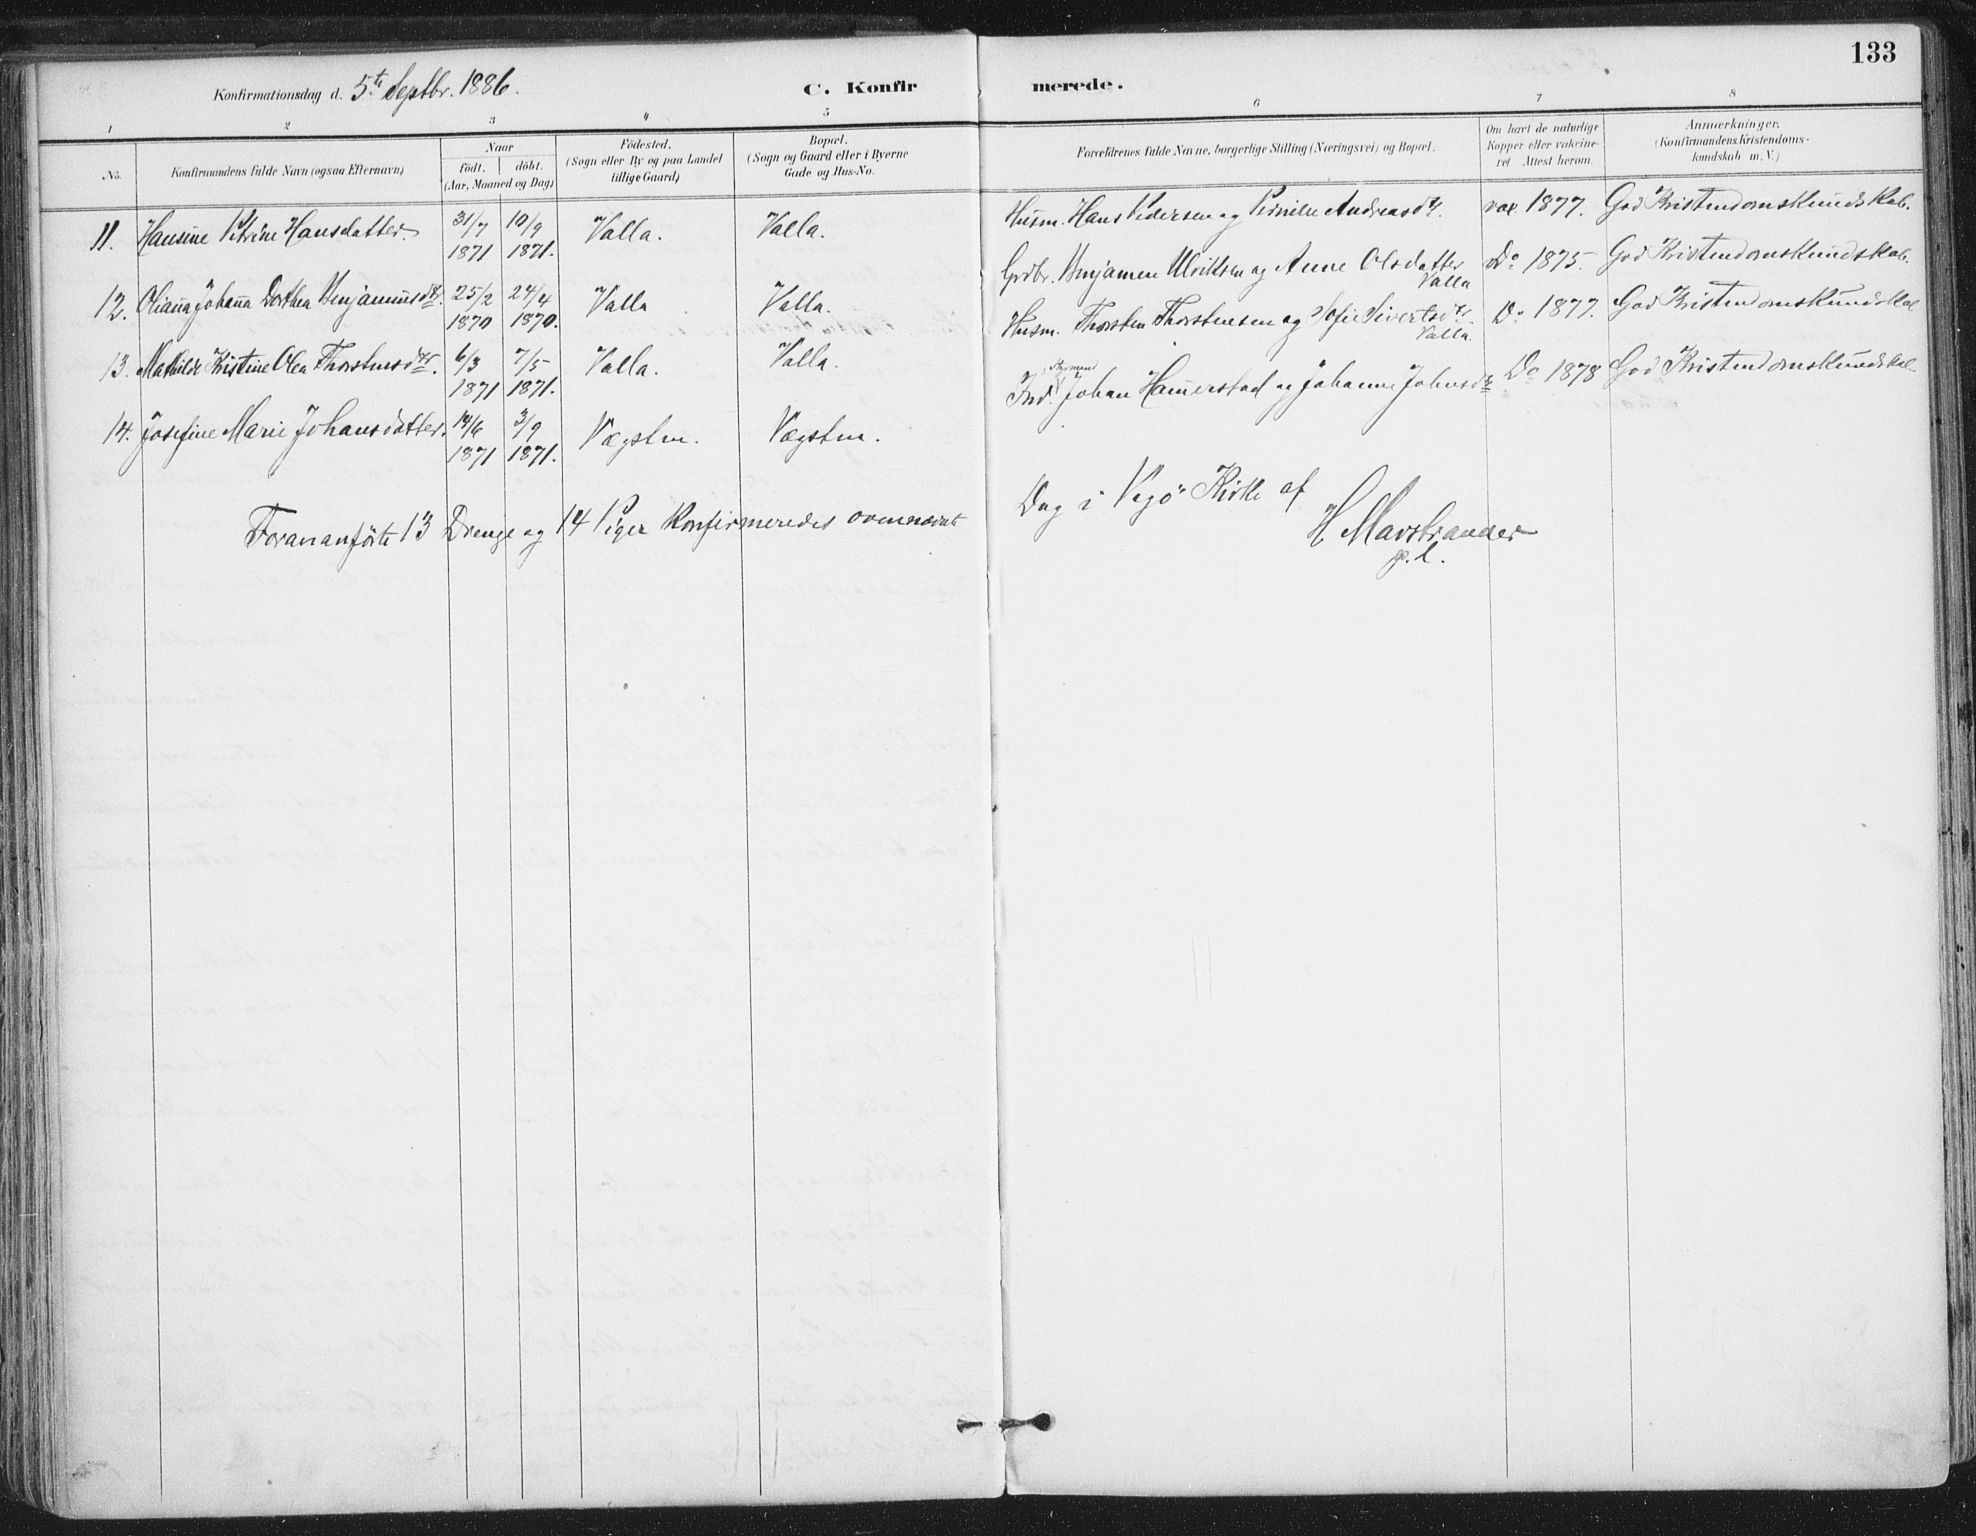 133
Konfirmationsdag d. 5te Septbr. 1886.
C. Konfirmerede.
1 2 3 4 5 6 7 8
No.
Konfirmandens fulde Navn (ogsaa Efternavn)
Naar
födt. döbt.
(Aar, Maaned og Dag)
Födested.
(Sogn eller By og paa Landet
tillige Gaard)
Bopæl.
(Sogn og Gaard eller i Byerne
Gade og Hus-No.
Forældrenes fulde Navne, borgerlige Stilling (Næringsvei) og Bopæl.
Om havt de naturlige
Kopper eller vakcine-
ret Attest herom.
Anmærkninger.
(Konfirmandens Kristendoms-
kundskab m. V.)
11. Hansine Petrine Hansdatter. 31/7 1871 10/9 1871. Valla. Valla. Husm. Hans Pedersen og Pernille Andreasdtr. vax. 1877. God Kristendomskundskab.
12. Oliana Johana Dorthea Benjaminsdtr. 25/2 1870 24/4 1870. Valla Valla. Grdbr. Benjamin Ulriksen og Anne Olsdatter Valla Do 1875. God Kristendomskundskab.
13. Mathilde Kristine Olea Thorstensdtr. 6/3 1871 7/5 1871. Valla. Valla. Husm. Thorsten Thorstensen og Sofie Sivertsdtr Valla. Do 1877. God Kristendomskundskab
14. Josefine Marie Johansdatter. 14/6 1871 3/9 1871. Vægsten. Vægsten. Ind. Johan Hamerstad og Johanne Johnsdtr Do 1878 God Kristendomskundskab
Forananførte 13 Drenge og 14 Piger Konfirmeredes ovennævnte
Dag i Vegö Kirke af
H Marstrander
p.t.